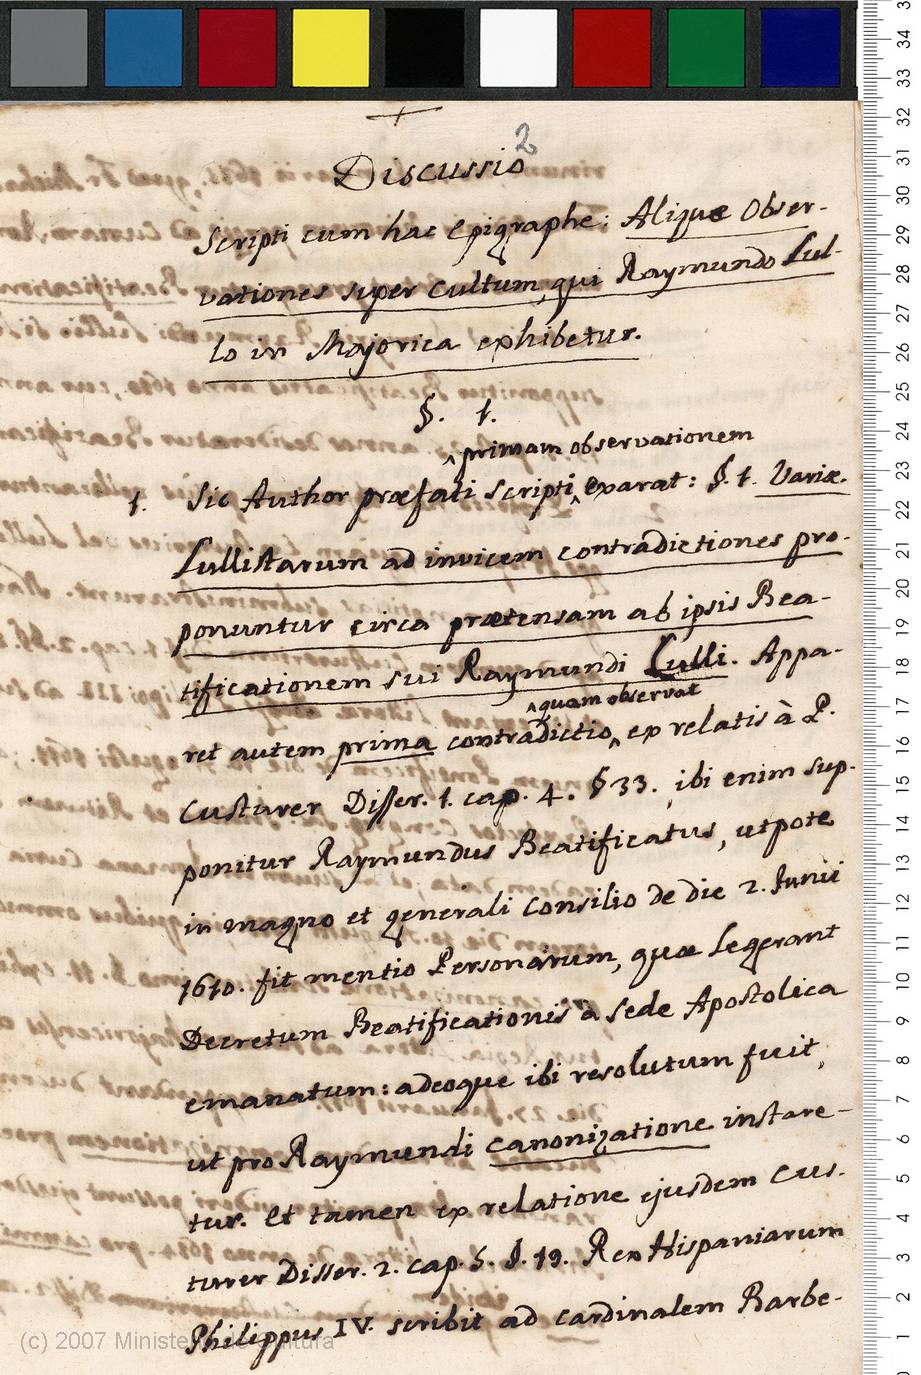 2
Discussio
Scripti cum hac Epigraphe: Aliquæ Obser-
vationes super cultum, qui Raymundo Lul-
lo in Majorica exhibetur.
§. 1.
primam observationem
1. Sic Author præfati scripti exarat: §. 1. Variæ
Lullistarum ad invicem contradictiones pro-
ponuntur circa prætensam ab ipsis Bea-
tificationem sui Raymundi Lulli. Appa-
quam observat
ret autem prima contradictio, ex relatis à P.
Custurer Disser. 1. cap. 4. § 33. ibi enim sup-
ponitur Raymundus Beatificatus, utpote
in magno et generali consilio de die 2. Junii
1610. fit mentio Personarum, quæ legerant
Decretum Beatificationis à Sede Apostolica
emanatum: adeoque ibi resolutum fuit,
ut pro Raymundi canonizatione instare-
tur. Et tamen ex relatione ejusdem Cus-
turer Disser. 2. cap. 5. §. 19. Rex Hispaniarum
Philippus IV. scribit ad cardinalem Barbe-
(c) 2007 Ministerio de Cultura
35
34
33
32
31
30
29
28
27
26
25
24
23
22
21
20
19
18
17
16
15
14
13
12
11
10
9
8
7
6
5
4
3
2
1